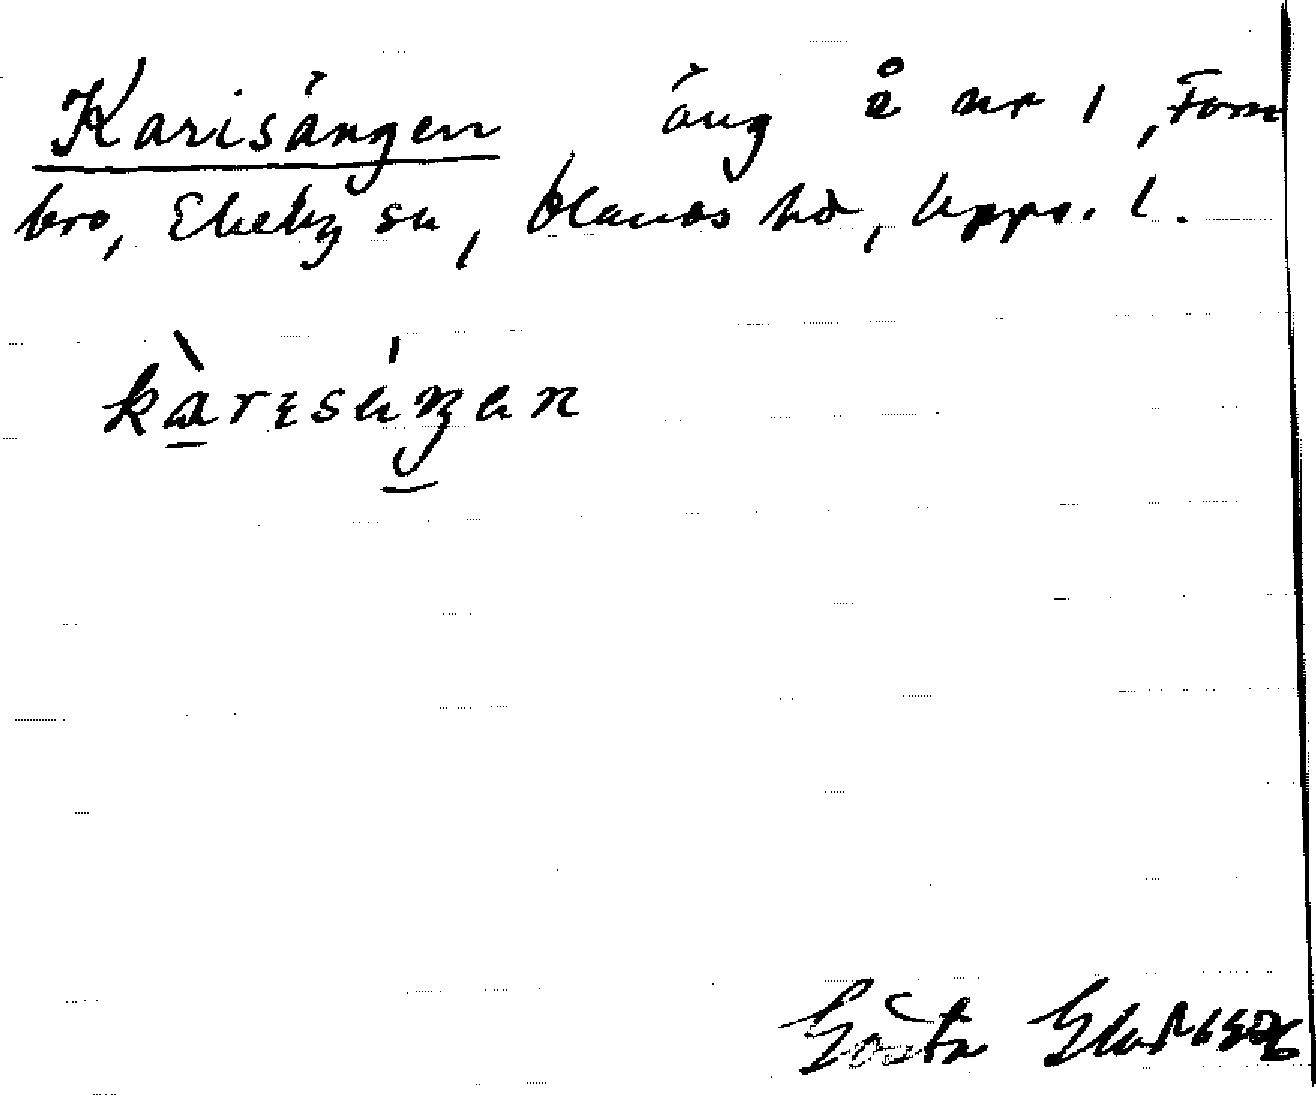 Karisängen äng å nr 1, Forn
bro, Ekeby sn, Olands hd, Upps. l.
kàrɩsáŋan
Gösta